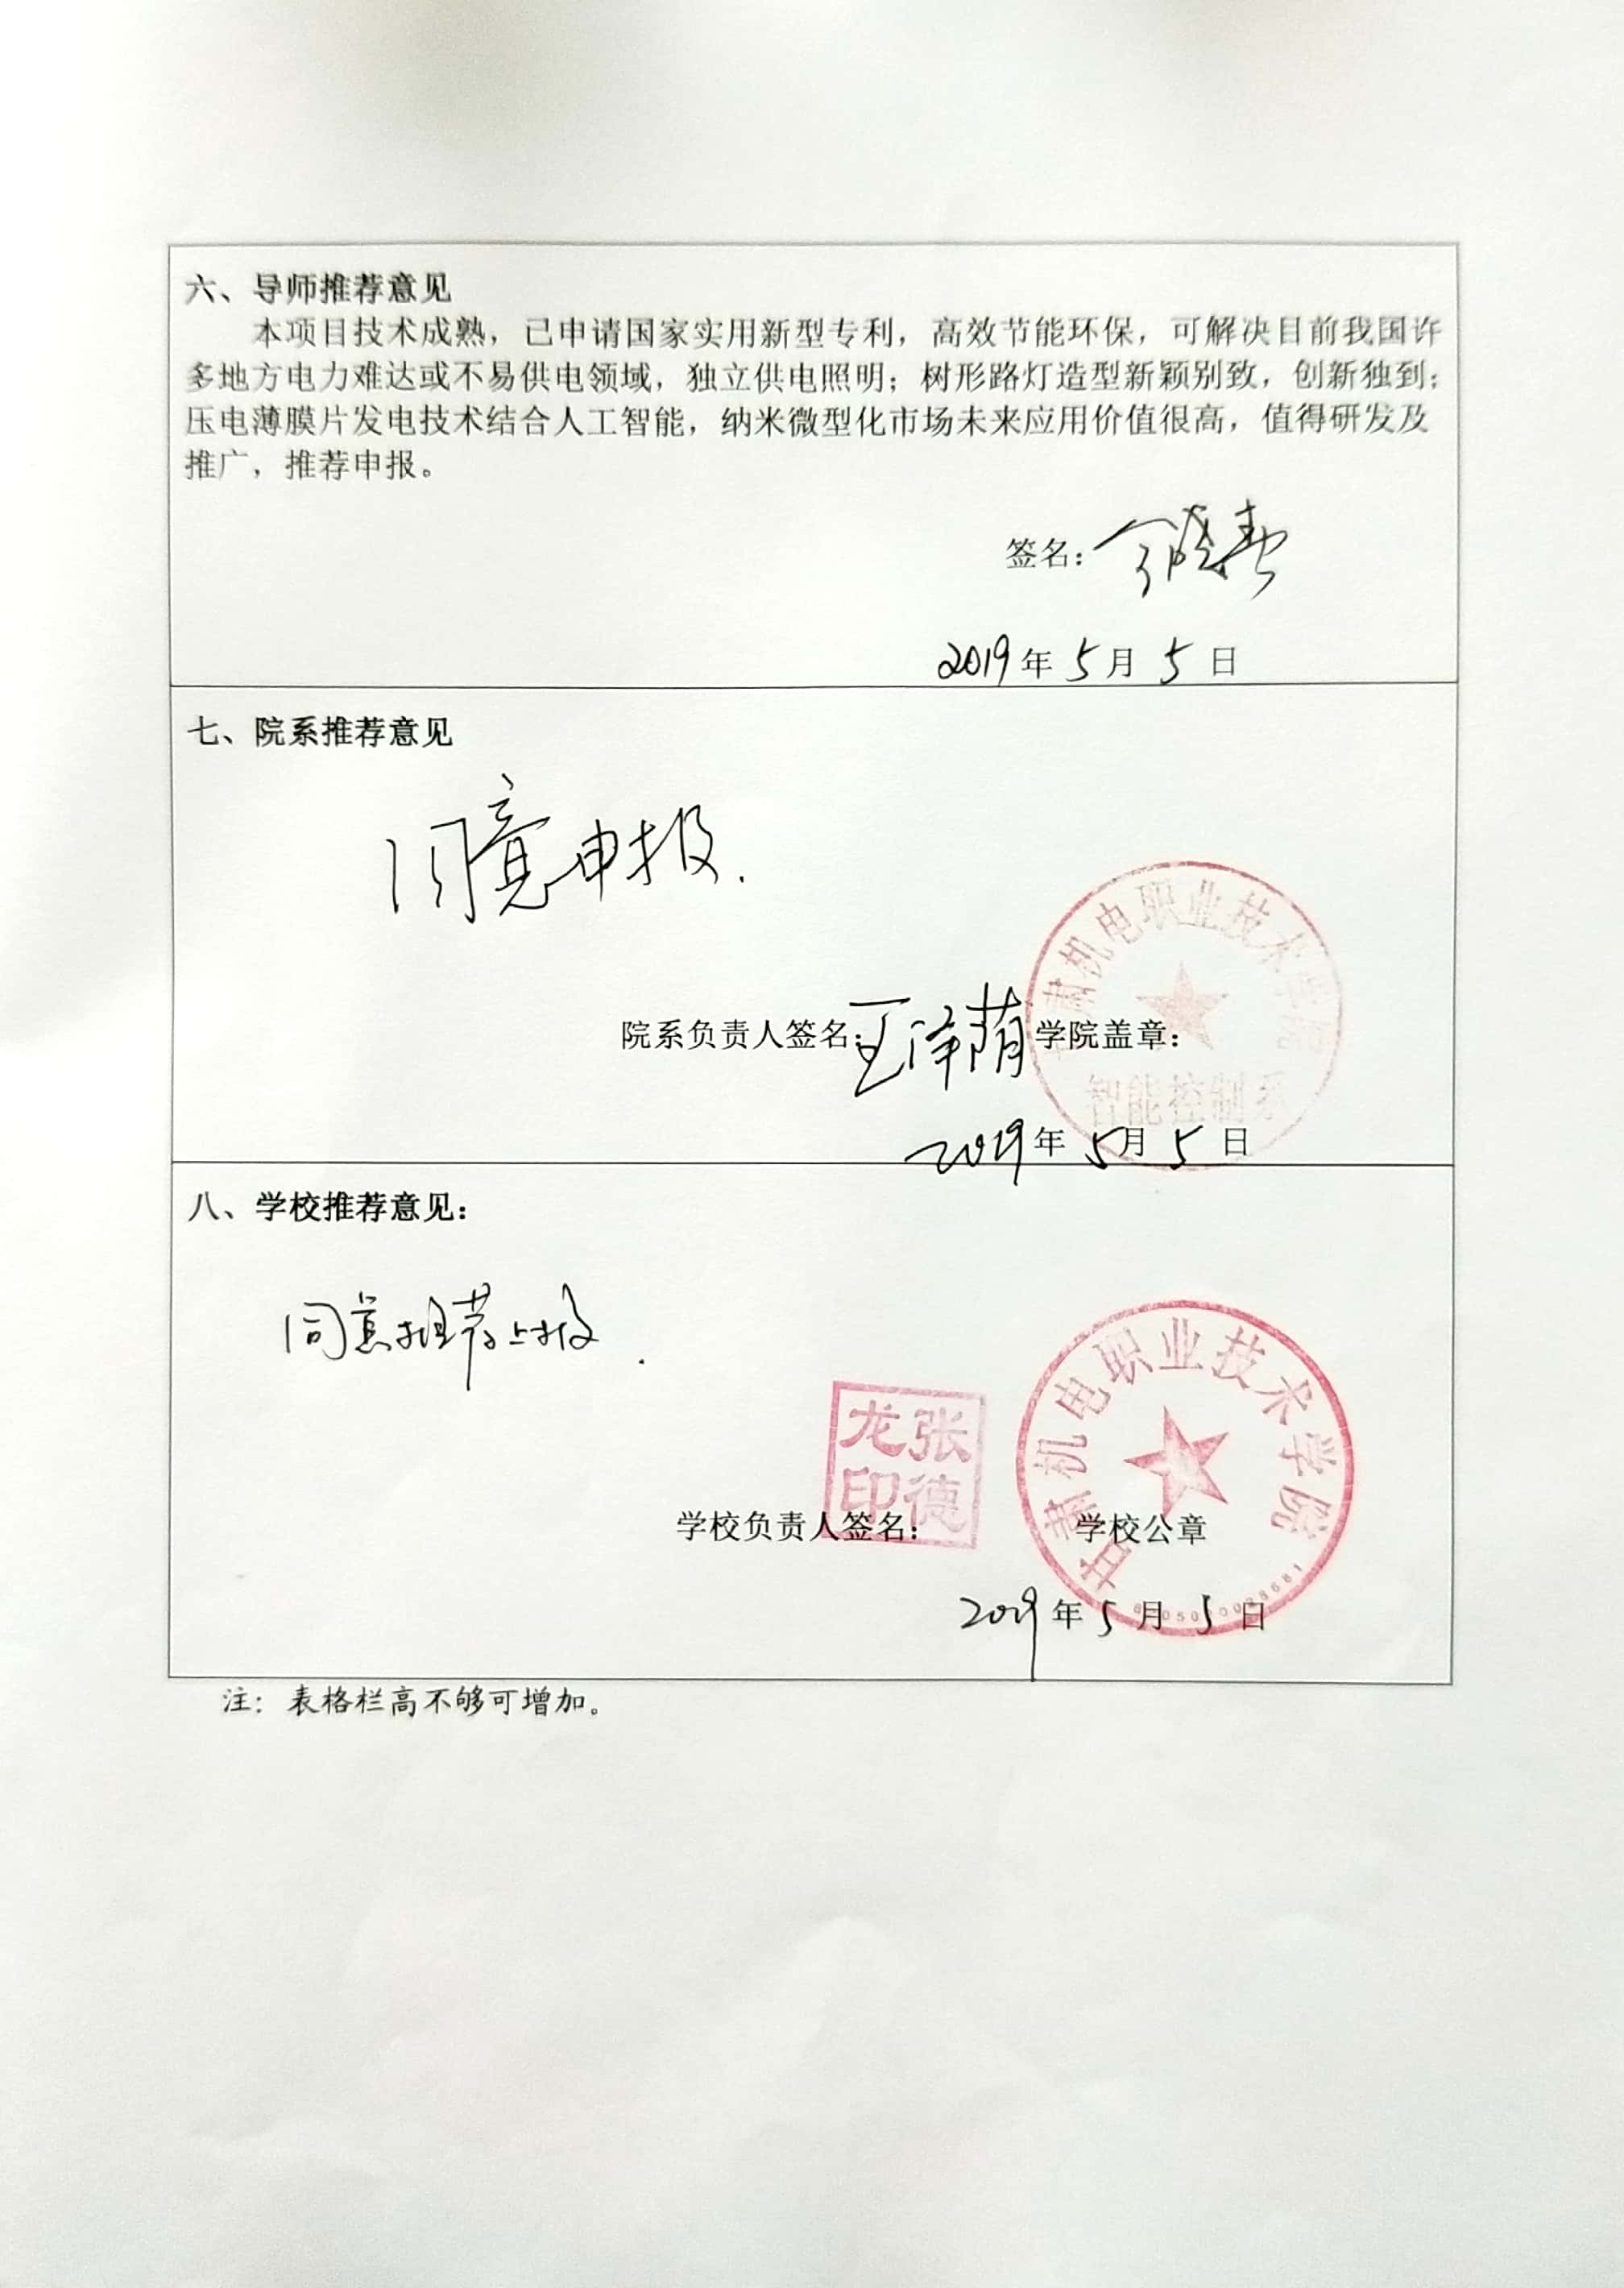 六、导师推荐意见
本项目技术成熟，已申请国家实用新型专利，高效节能环保，可解决目前我国许
多地方电力难达或不易供电领域，独立供电照明；树形路灯造型新颖别致，创新独到；
压电薄膜片发电技术结合人工智能，纳米微型化市场未来应用价值很高，值得研发及
推广，推荐申报。
签名：
2019年5月5日
七、院系推荐意见
同意申报.
甘肃机电职业技术学院
智能控制系
院系负责人签名：王泽荫 学院盖章：
2019年5月5日
八、学校推荐意见：
同意推荐上报.
张德龙印
甘肃机电职业技术学院
学校负责人签名： 学校公章
2019年5月5日
注：表格栏高不够可增加。